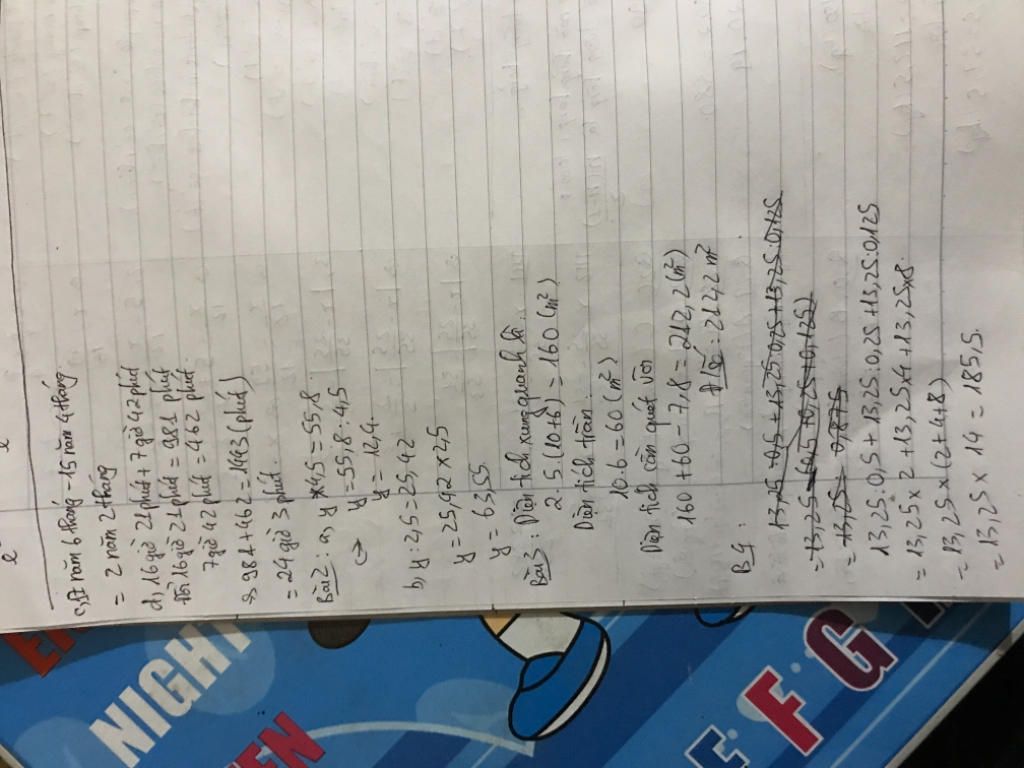 c, 17 năm 6 tháng - 15 năm 4 tháng
= 2 năm 2 tháng
d, 16 giờ 21 phút + 7 giờ 42 phút
16 giờ 21 phút = 981 phút
7 giờ 42 phút = 462 phút
→ 981 + 462 = 1443 (phút)
= 24 giờ 3 phút.
Bài 2: a, y × 4,5 = 55,8
y = 55,8 : 4,5
y = 12,4.
b, y : 2,5 = 25,42
y = 25,42 × 2,5
y = 63,55
Bài 3: Diện tích xung quanh là
2. 5. (10+6) = 160 (m²)
Diện tích trần:
10.6 = 60 (m²)
Diện tích cần quét vôi
160 + 60 - 7,8 = 212,2 (m²)
Đ Số: 212,2 m²
B4:
13,25 : 0,5 + 13,25 : 0,25 + 13,25 : 0,125
= 13,25 : (0,5 + 0,25 + 0,125)
= 13,25 : 0,875
13,25 : 0,5 + 13,25 : 0,25 + 13,25 : 0,125
= 13,25 × 2 + 13,25 × 4 + 13,25 × 8
= 13,25 × (2+4+8)
= 13,25 × 14 = 185,5.
NIGHT
E F G